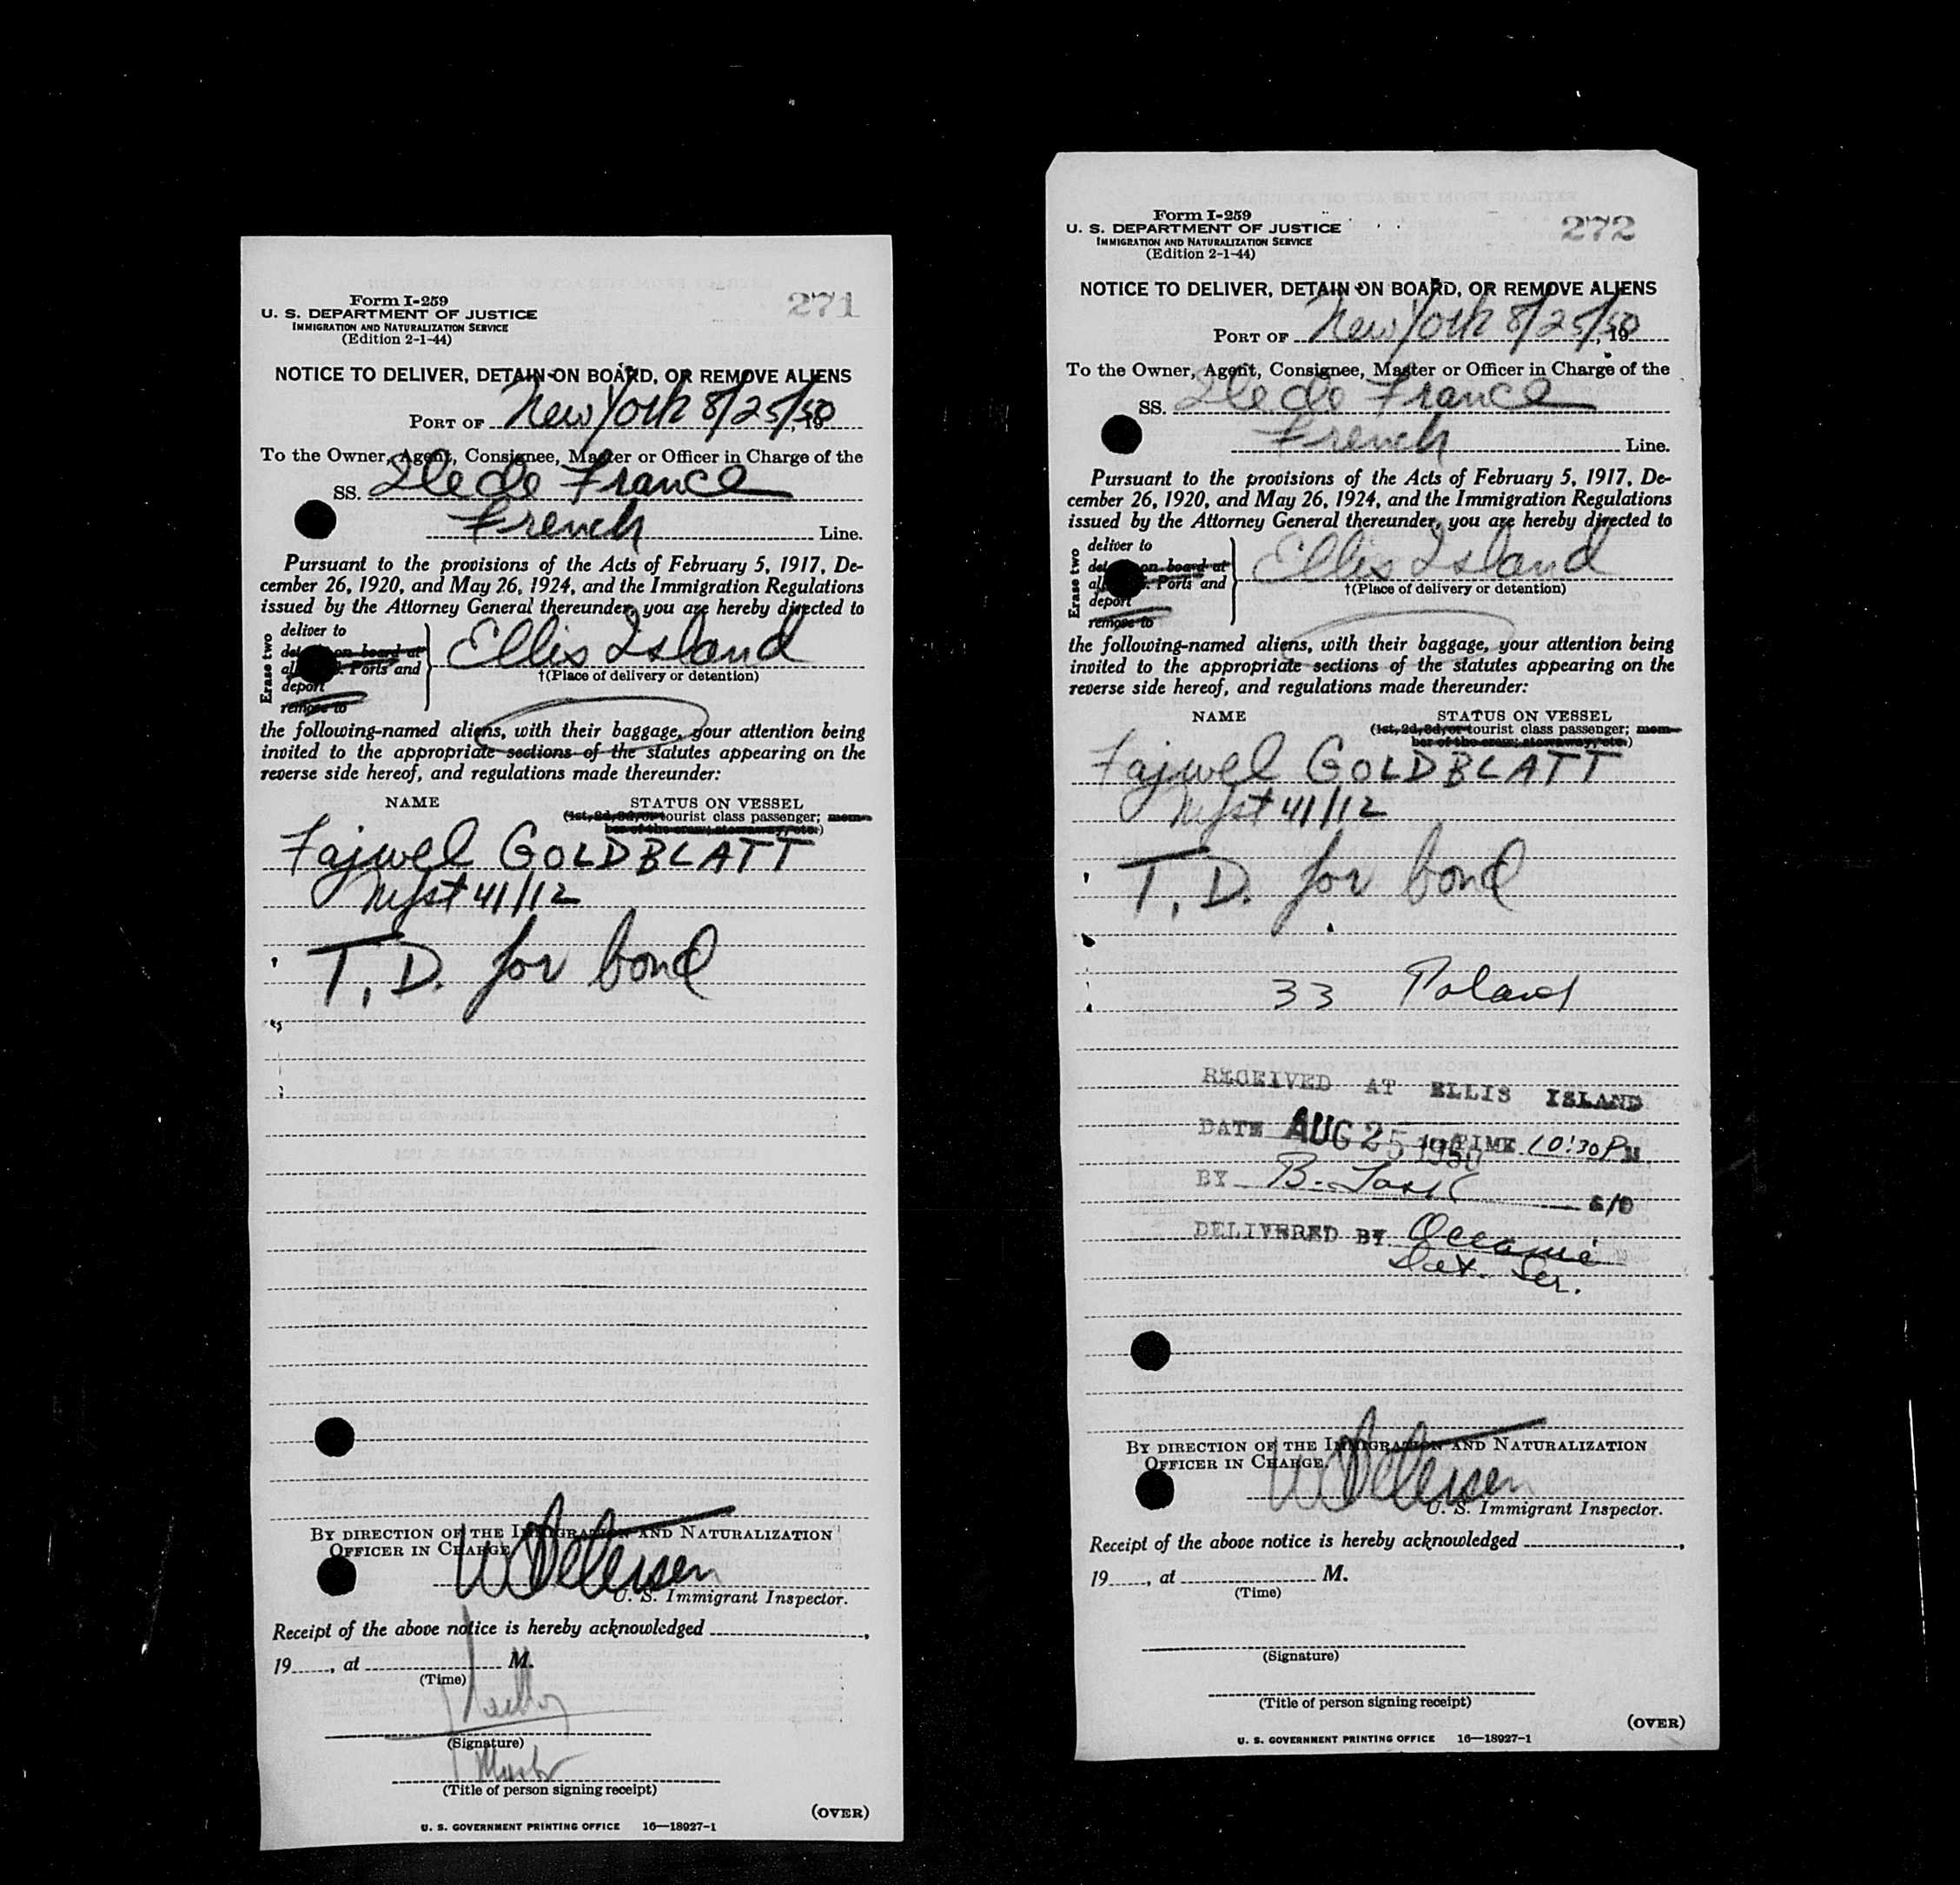 271
Form I-259
U. S. DEPARTMENT OF JUSTICE
IMMIGRATION AND NATURALIZATION SERVICE
(Edition 2-1-44)
NOTICE TO DELIVER, DETAIN ON BOARD, OR REMOVE ALIENS
PORT OF New York 8/25/50, 19
To the Owner, Agent, Consignee, Master or Officer in Charge of the
SS. Ile de France
French Line.
Pursuant to the provisions of the Acts of February 5, 1917, De-
cember 26, 1920, and May 26, 1924, and the Immigration Regulations
issued by the Attorney General thereunder, you are hereby directed to
Erase two
deliver to
on board at
Ports and
deport
remove to
Ellis Island
†(Place of delivery or detention)
the following-named aliens, with their baggage, your attention being
invited to the appropriate sections of the statutes appearing on the
reverse side hereof, and regulations made thereunder:
NAME STATUS ON VESSEL
(1st, 2d, 3d, or tourist class passenger; mem-
ber of the crew; stowaway, etc.)
Fajwel GOLDBLATT
41/12
T. D. for bond
BY DIRECTION OF THE IMMIGRATION AND NATURALIZATION
OFFICER IN CHARGE.
U. S. Immigrant Inspector.
Receipt of the above notice is hereby acknowledged
19, at M.
(Time)
(Signature)
(Title of person signing receipt)
(OVER)
U. S. GOVERNMENT PRINTING OFFICE 16—18927-1
272
Form I-259
U. S. DEPARTMENT OF JUSTICE
IMMIGRATION AND NATURALIZATION SERVICE
(Edition 2-1-44)
NOTICE TO DELIVER, DETAIN ON BOARD, OR REMOVE ALIENS
PORT OF New York 8/25/50, 19
To the Owner, Agent, Consignee, Master or Officer in Charge of the
SS. Ile de France
French Line.
Pursuant to the provisions of the Acts of February 5, 1917, De-
cember 26, 1920, and May 26, 1924, and the Immigration Regulations
issued by the Attorney General thereunder, you are hereby directed to
Erase two
deliver to
on board at
Ports and
deport
remove to
Ellis Island
†(Place of delivery or detention)
the following-named aliens, with their baggage, your attention being
invited to the appropriate sections of the statutes appearing on the
reverse side hereof, and regulations made thereunder:
NAME STATUS ON VESSEL
(1st, 2d, 3d, or tourist class passenger; mem-
ber of the crew; stowaway, etc.)
Fajwel GOLDBLATT
41/12
T. D. for bond
33 Poland
RECEIVED AT ELLIS ISLAND
DATE AUG 25 1950 TIME 10:30 PM
BY B.
DELIVERED BY
Ser.
BY DIRECTION OF THE IMMIGRATION AND NATURALIZATION
OFFICER IN CHARGE.
U. S. Immigrant Inspector.
Receipt of the above notice is hereby acknowledged
19, at M.
(Time)
(Signature)
(Title of person signing receipt)
(OVER)
U. S. GOVERNMENT PRINTING OFFICE 16—18927-1